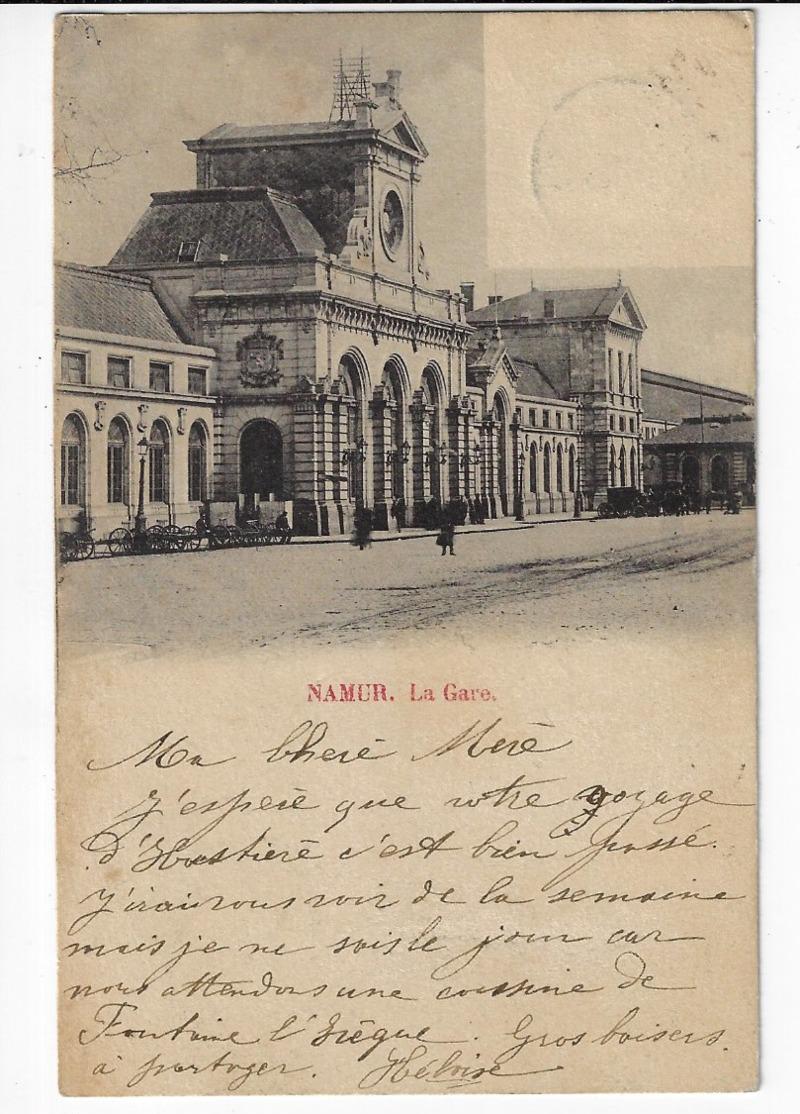 NAMUR. La Gare.
Ma Cherè Merè
J'esperè que votre voyage
d'Hastierè c'est bien passé.
J'irai vous voir de la semaine
mais je ne sais le jour car
nous attendons une coussine de
Fontaine l'Evêque. Gros baisers
à partager. Héloise